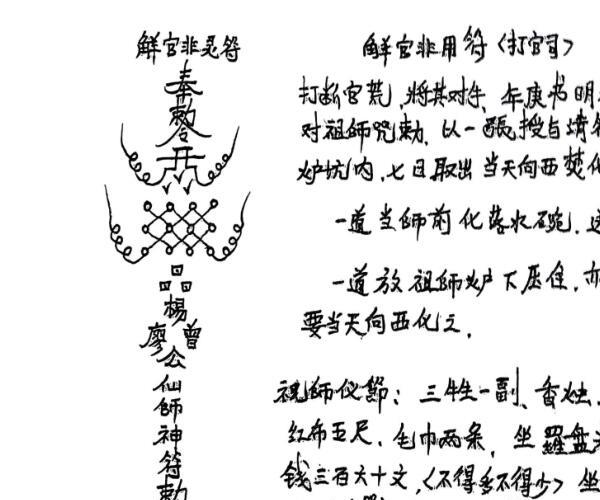 解官非灵符
奉
勅
令
品
楊
廖 曾
公
仙
師
神
符
勅
解官非用符〈打官司〉
打断官荒、将其对件、年庚书明
对祖师咒勅、以一張授与情
炉坑内、七日取出当天向西焚化
一道当師前化落水碗、
一道放祖師炉下压住、亦
要当天向西化之、
祝师仪節：三牲一副、香烛、
红布五尺、毛巾两条、坐羅盘
钱三百六十文、〈不得多不得少〉坐